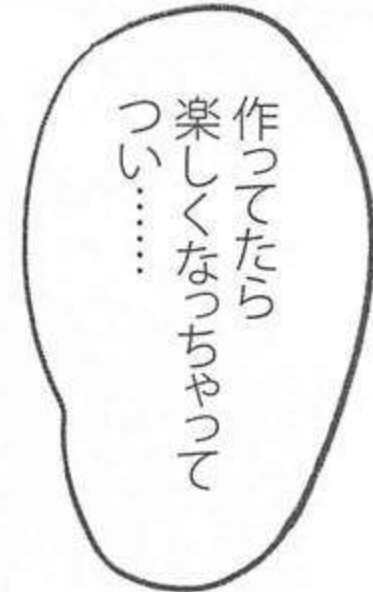 作ってたら
楽しくなっちゃって
つい……